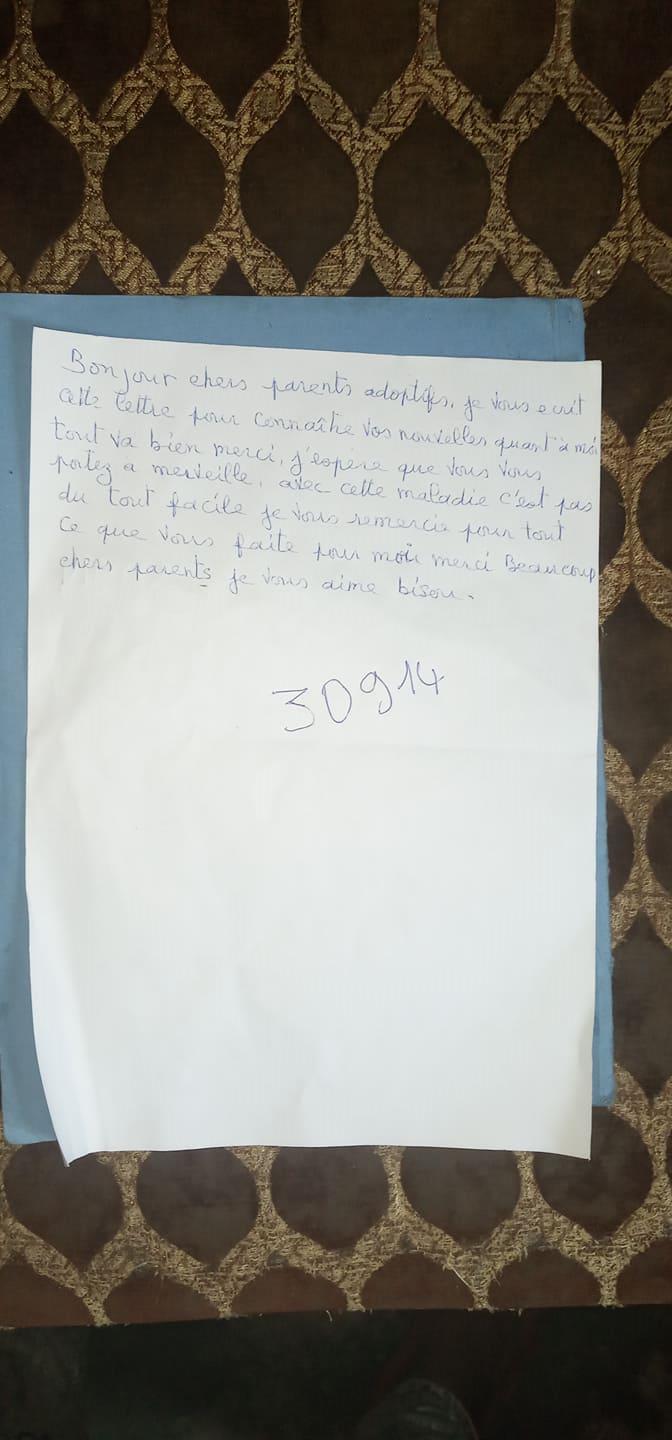 Bonjour chers parents adoptifs, je vous ecrit
cette lettre pour connaître vos nouvelles quant à moi
tout va bien merci, j'espère que vous vous
portez a merveille, avec cette maladie c'est pas
du tout facile je vous remercie pour tout
ce que vous faite pour moi merci Beaucoup
chers parents je vous aime bisou.
30914